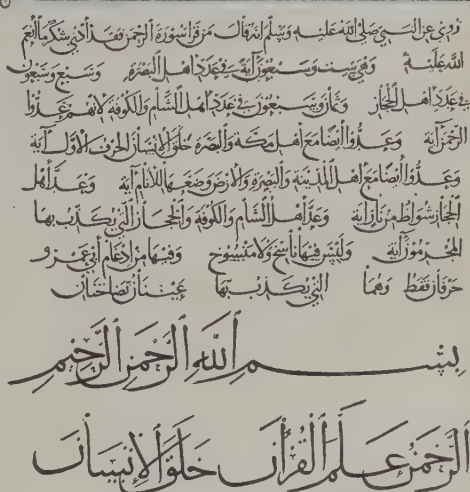 روي عن النبي صلى الله عليه وسلم انه قال من قرأ سورة الرحمن فقد أدى شكر ما أنعم
الله عليه وهي ست وسبعون آية في عدد اهل البصرة وسبع وسبعون
في عدد اهل الحجاز وثمان وسبعون في عدد اهل الشام والكوفة لأنهم عدوا
الرحمن آية وعدوا أيضا مع أهل مكة والبصرة خلق الإنسان الحرف الأول آية
وعدوا أيضا مع اهل المدينة والبصرة والارض وضعها للأنام آية وعد أهل
الحجاز شواظ من نار آية وعد أهل الشام والكوفة والحجاز التي يكذب بها
المجرمون آية وليس فيها ناسخ ولا منسوخ وفيها من إدغام أبي عمرو
حرفان فقط وهما التي يكذب بها عينان نضاختان
بسم الله الرحمن الرحيم
الرحمن علم القرآن خلق الإنسان